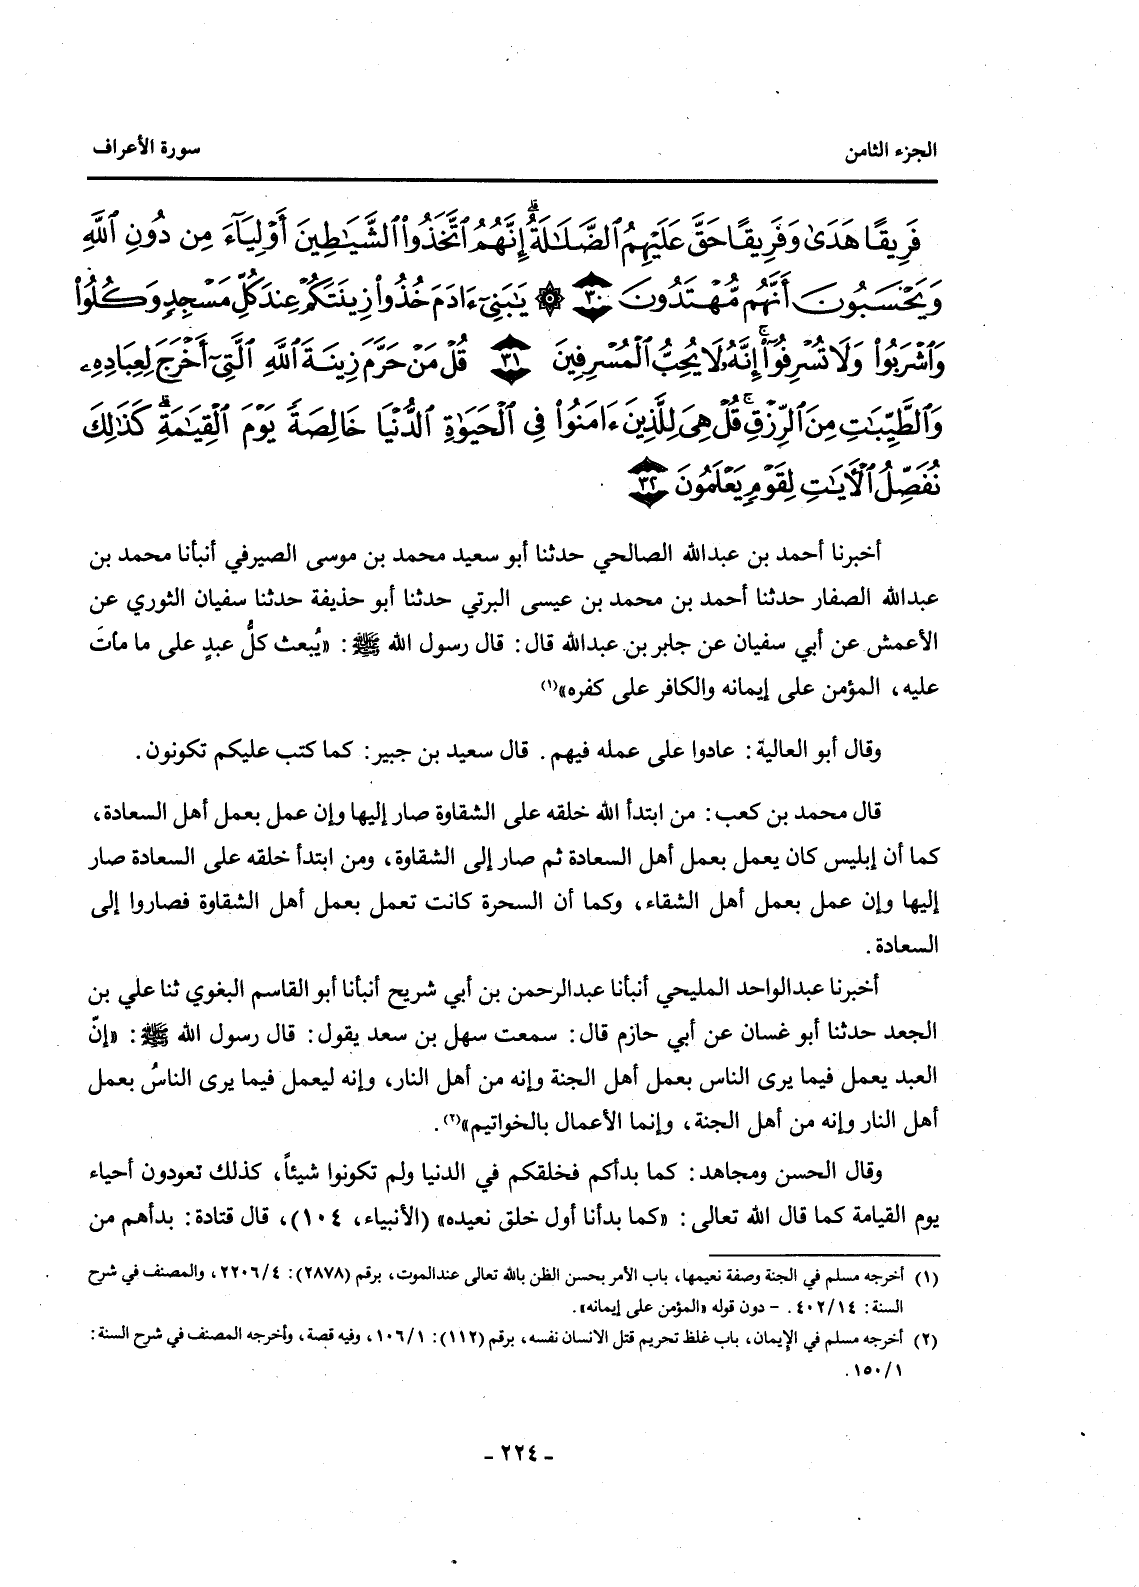 الجزء الثامن
سورة الأعراف
فَرِيقًا هَدَىٰ وَفَرِيقًا حَقَّ عَلَيْهِمُ ٱلضَّلَٰلَةُ ۗ إِنَّهُمُ ٱتَّخَذُوا۟ ٱلشَّيَٰطِينَ أَوْلِيَآءَ مِن دُونِ ٱللَّهِ
وَيَحْسَبُونَ أَنَّهُم مُّهْتَدُونَ ٣٠ ۞ يَٰبَنِىٓ ءَادَمَ خُذُوا۟ زِينَتَكُمْ عِندَ كُلِّ مَسْجِدٍ وَكُلُوا۟
وَٱشْرَبُوا۟ وَلَا تُسْرِفُوٓا۟ ۚ إِنَّهُۥ لَا يُحِبُّ ٱلْمُسْرِفِينَ ٣١ قُلْ مَنْ حَرَّمَ زِينَةَ ٱللَّهِ ٱلَّتِىٓ أَخْرَجَ لِعِبَادِهِۦ
وَٱلطَّيِّبَٰتِ مِنَ ٱلرِّزْقِ ۚ قُلْ هِىَ لِلَّذِينَ ءَامَنُوا۟ فِى ٱلْحَيَوٰةِ ٱلدُّنْيَا خَالِصَةً يَوْمَ ٱلْقِيَٰمَةِ ۗ كَذَٰلِكَ
نُفَصِّلُ ٱلْءَايَٰتِ لِقَوْمٍ يَعْلَمُونَ ٣٢
أخبرنا أحمد بن عبدالله الصالحي حدثنا أبو سعيد محمد بن موسى الصيرفي أنبأنا محمد بن
عبدالله الصفار حدثنا أحمد بن محمد بن عيسى البرتي حدثنا أبو حذيفة حدثنا سفيان الثوري عن
الأعمش عن أبي سفيان عن جابر بن عبدالله قال: قال رسول الله ﷺ: «يُبعث كلُّ عبدٍ على ما ماتَ
عليه، المؤمن على إيمانه والكافر على كفره»(١)
وقال أبو العالية: عادوا على عمله فيهم. قال سعيد بن جبير: كما كتب عليكم تكونون.
قال محمد بن كعب: من ابتدأ الله خلقه على الشقاوة صار إليها وإن عمل بعمل أهل السعادة،
كما أن إبليس كان يعمل بعمل أهل السعادة ثم صار إلى الشقاوة، ومن ابتدأ خلقه على السعادة صار
إليها وإن عمل بعمل أهل الشقاء، وكما أن السحرة كانت تعمل بعمل أهل الشقاوة فصاروا إلى
السعادة.
أخبرنا عبدالواحد المليحي أنبأنا عبدالرحمن بن أبي شريح أنبأنا أبو القاسم البغوي ثنا علي بن
الجعد حدثنا أبو غسان عن أبي حازم قال: سمعت سهل بن سعد يقول: قال رسول الله ﷺ: «إنّ
العبد يعمل فيما يرى الناس بعمل أهل الجنة وإنه من أهل النار، وإنه ليعمل فيما يرى الناسُ بعمل
أهل النار وإنه من أهل الجنة، وإنما الأعمال بالخواتيم»(٢).
وقال الحسن ومجاهد: كما بدأكم فخلقكم في الدنيا ولم تكونوا شيئاً، كذلك تعودون أحياء
يوم القيامة كما قال الله تعالى: «كما بدأنا أول خلق نعيده» (الأنبياء، ١٠٤)، قال قتادة: بدأهم من
(١) أخرجه مسلم في الجنة وصفة نعيمها، باب الأمر بحسن الظن بالله تعالى عندالموت، برقم (٢٨٧٨): ٢٢٠٦/٤، والمصنف في شرح
السنة: ٤٠٢/١٤. - دون قوله «المؤمن على إيمانه».
(٢) أخرجه مسلم في الإيمان، باب غلظ تحريم قتل الانسان نفسه، برقم (١١٢): ١٠٦/١، وفيه قصة، وأخرجه المصنف في شرح السنة:
١٥٠/١.
- ٢٢٤ -